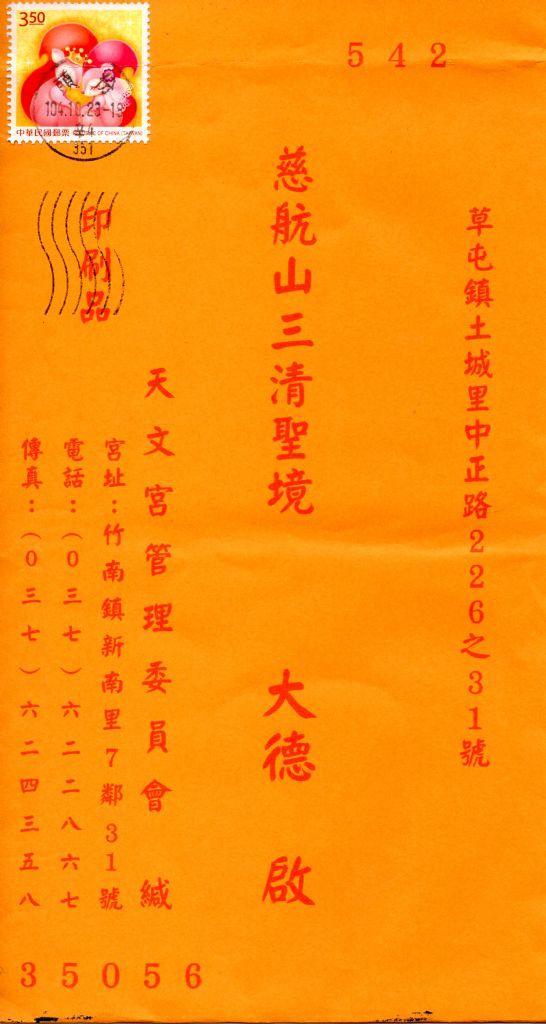 542
草屯鎮土城里中正路226之31號
慈航山三清聖境 大德 啟
天文宮管理委員會 緘
宮址：竹南鎮新南里7鄰31號
電話：（0三七）六二二八六七
傳真：（0三七）六二四三五八
35056
印刷品
3.50
中華民國郵票 REPUBLIC OF CHINA (TAIWAN)
104.10.23-18
351